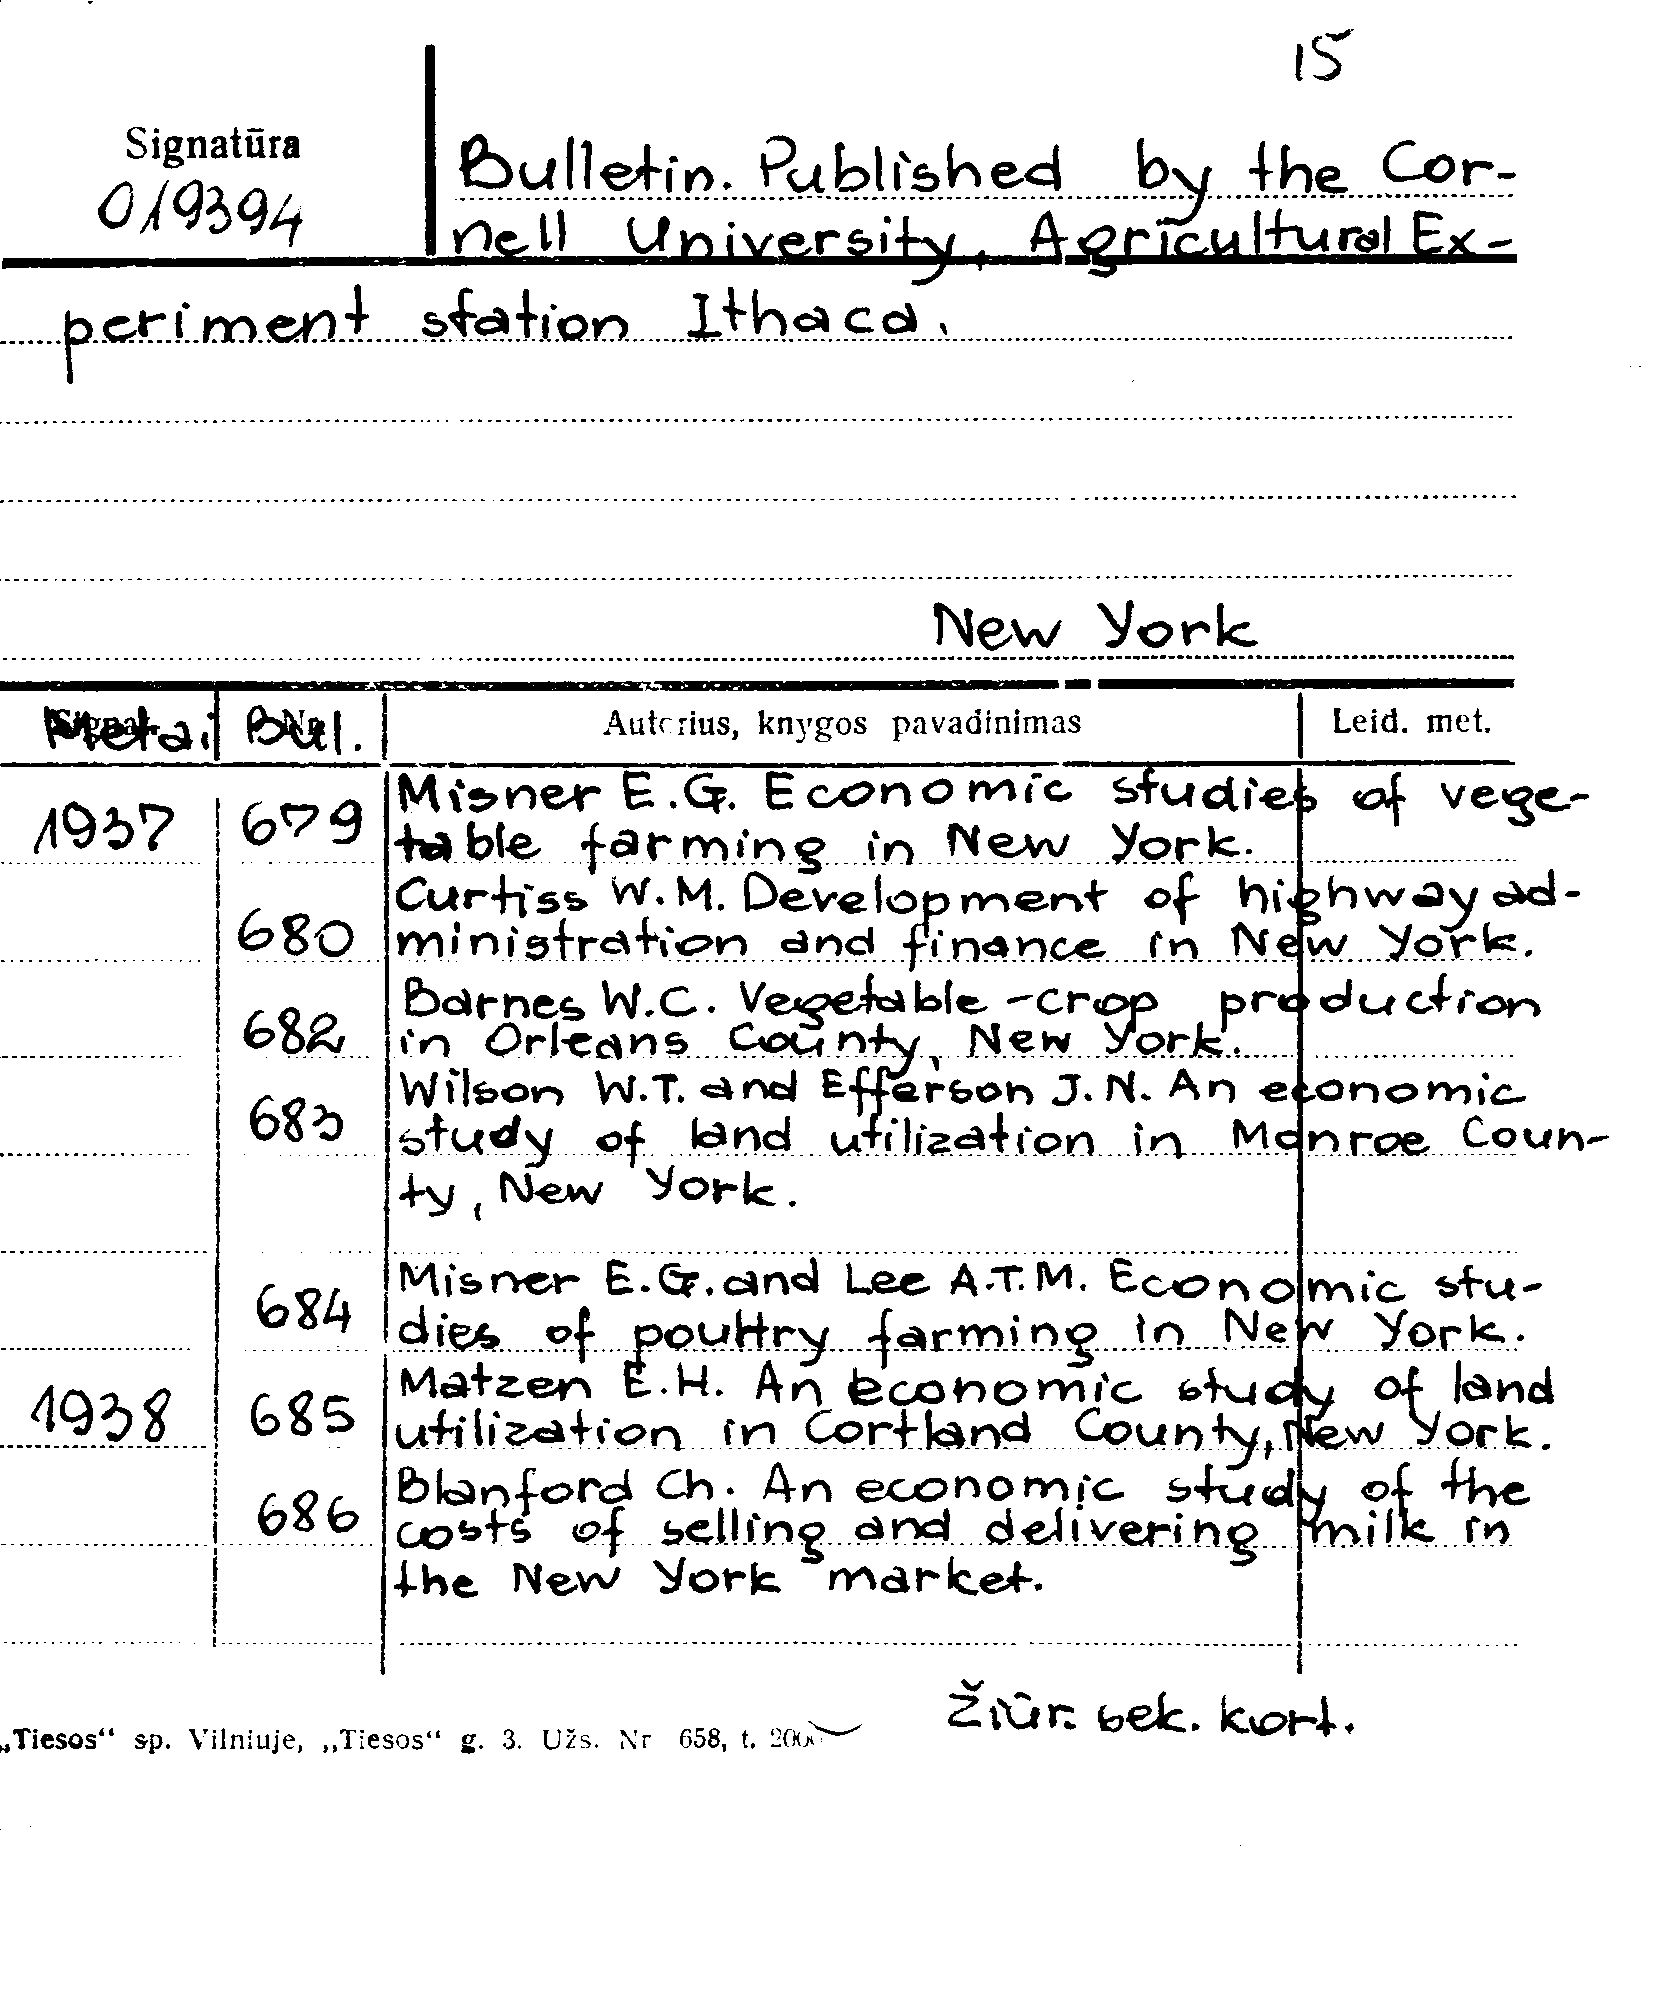 15
Signatūra
019394
Bulletin. Published by the Cor-
nell University, Agricultural Ex-
periment station Ithaca.
New York
Metai Bul. Autorius, knygos pavadinimas Leid. met.
1937 679 Misner E.G. Economic studies of vege-
table farming in New York.
680 Curtiss W.M. Development of highway ad-
ministration and finance in New York.
682 Barnes W.C. Vegetable-crop production
in Orleans County, New York.
683 Wilson W.T. and Efferson J.N. An economic
study of land utilization in Monroe Coun-
ty, New York.
684 Misner E.G. and Lee A.T.M. Economic stu-
dies of poultry farming in New York.
1938 685 Matzen E.H. An economic study of land
utilization in Cortland County, New York.
686 Blanford Ch. An economic study of the
costs of selling and delivering milk in
the New York market.
Žiūr. sek. kort.
„Tiesos“ sp. Vilniuje, „Tiesos“ g. 3. Užs. Nr 658, t.